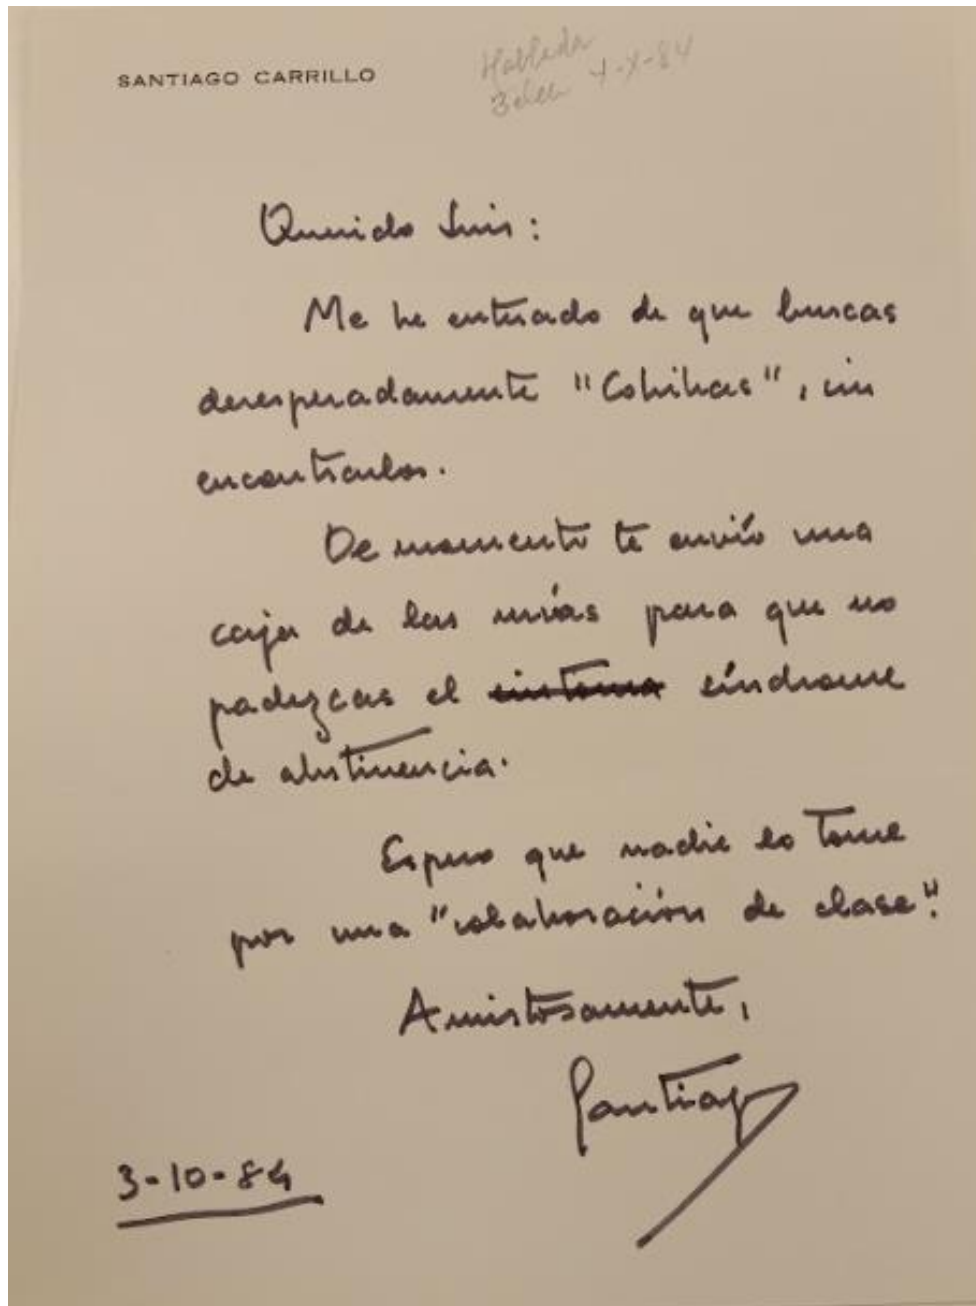 SANTIAGO CARRILLO
Hablada
7-X-84
Querido Luis:
Me he enterado de que buscas
desesperadamente "Cohibas", sin
encontrarlos.
De momento te envío una
caja de las mías para que no
padezcas el sintoma síndrome
de abstinencia.
Espero que nadie lo tome
por una "colaboración de clase".
Amistosamente,
Santiago
3-10-84